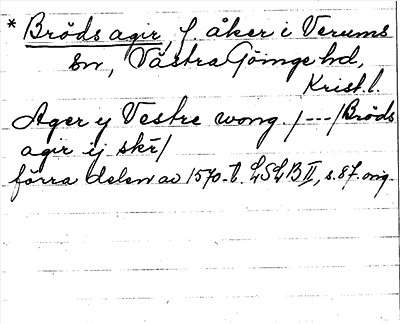 * Bröds agir, f. åker i Verums
sn, Västra Göinge hd,
Krist. l.
Ager y Vestre wong. /---/ Bröds
agir ij skr/
förra delen av 1570-t. LSLB II, s. 87. orig.